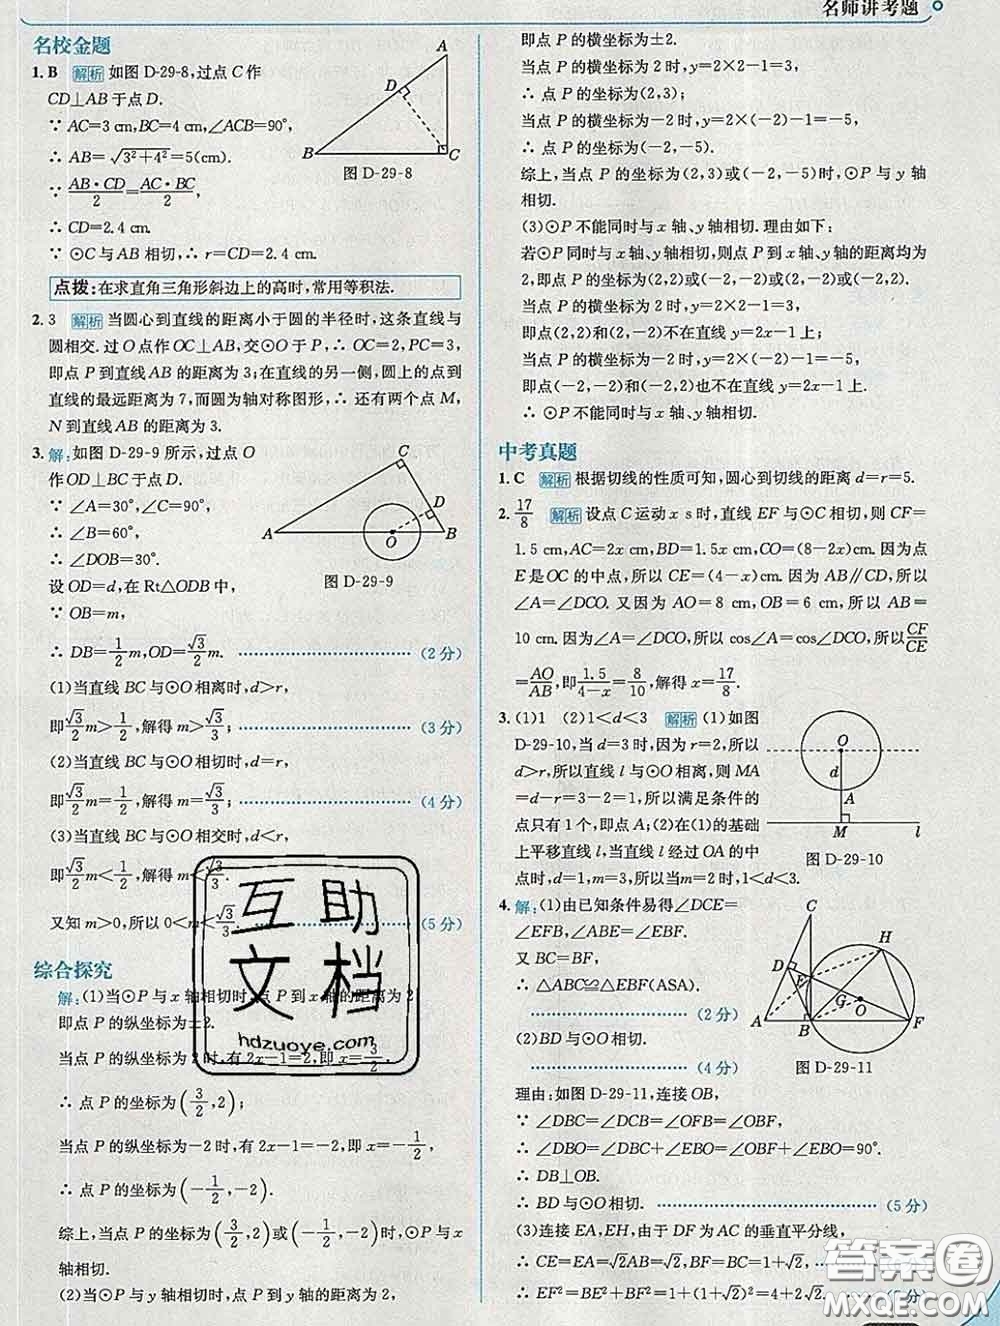 名师讲考题
名校金题
1. B 解析 如图 D-29-8,过点 C 作
CD⊥AB 于点 D.
∵ AC=3 cm,BC=4 cm,∠ACB=90°,
∴ AB=√(3²+4²)=5(cm).
∵ AB·CD/2=AC·BC/2,
∴ CD=2.4 cm.
∵ ⊙C 与 AB 相切,∴ r=CD=2.4 cm.
A
D
B
C
图 D-29-8
点拨:在求直角三角形斜边上的高时,常用等积法.
2. 3 解析 当圆心到直线的距离小于圆的半径时,这条直线与
圆相交.过 O 点作 OC⊥AB,交⊙O 于 P,∴ OC=2,PC=3,
即点 P 到直线 AB 的距离为 3;在直线的另一侧,圆上的点到
直线的最远距离为 7,而圆为轴对称图形,∴ 还有两个点 M,
N 到直线 AB 的距离为 3.
3. 解:如图 D-29-9 所示,过点 O
作 OD⊥BC 于点 D.
∵ ∠A=30°,∠C=90°,
∴ ∠B=60°.
∴ ∠DOB=30°.
设 OD=d,在 Rt△ODB 中,
∵ OB=m,
C
D
A
O
B
图 D-29-9
∴ DB=1/2 m,OD=√3/2 m. (2 分)
(1)当直线 BC 与⊙O 相离时,d>r,
即√3/2 m>1/2,解得 m>√3/3; (3 分)
(2)当直线 BC 与⊙O 相切时,d=r,
即√3/2 m=1/2,解得 m=√3/3; (4 分)
(3)当直线 BC 与⊙O 相交时,d<r,
即√3/2 m<1/2,解得 m<√3/3.
又知 m>0,所以 0<m<√3/3. (5 分)
综合探究
解:(1)当⊙P 与 x 轴相切时,点 P 到 x 轴的距离为 2
即点 P 的纵坐标为±2.
当点 P 的纵坐标为 2 时,有 2x-1=2,即 x=3/2
∴ 点 P 的坐标为(3/2,2);
当点 P 的纵坐标为-2 时,有 2x-1=-2,即 x=-1/2,
∴ 点 P 的坐标为(-1/2,-2).
综上,当点 P 的坐标为(3/2,2)或(-1/2,-2)时,⊙P 与 x
轴相切.
(2)当⊙P 与 y 轴相切时,点 P 到 y 轴的距离为 2,
即点 P 的横坐标为±2.
当点 P 的横坐标为 2 时,y=2×2-1=3,
∴ 点 P 的坐标为(2,3);
当点 P 的横坐标为-2 时,y=2×(-2)-1=-5,
∴ 点 P 的坐标为(-2,-5).
综上,当点 P 的坐标为(2,3)或(-2,-5)时,⊙P 与 y 轴
相切.
(3)⊙P 不能同时与 x 轴、y 轴相切.理由如下:
若⊙P 同时与 x 轴、y 轴相切,则点 P 到 x 轴、y 轴的距离均为
2,即点 P 的坐标为(2,2)或(-2,-2)或(2,-2)或(-2,2).
当点 P 的横坐标为 2 时,y=2×2-1=3,
即点(2,2)和(2,-2)不在直线 y=2x-1 上;
当点 P 的横坐标为-2 时,y=2×(-2)-1=-5,
即点(-2,-2)和(-2,2)也不在直线 y=2x-1 上.
∴ ⊙P 不能同时与 x 轴、y 轴相切.
中考真题
1. C 解析 根据切线的性质可知,圆心到切线的距离 d=r=5.
2. 17/8 解析 设点 C 运动 x s 时,直线 EF 与⊙C 相切,则 CF=
1.5 cm,AC=2x cm,BD=1.5x cm,CO=(8-2x)cm.因为点
E 是 OC 的中点,所以 CE=(4-x)cm.因为 AB∥CD,所以
∠A=∠DCO.又因为 AO=8 cm,OB=6 cm,所以 AB=
10 cm.因为∠A=∠DCO,所以 cos∠A=cos∠DCO,所以CF/CE
=AO/AB,即1.5/(4-x)=8/10,解得 x=17/8.
3. (1)1 (2)1<d<3 解析 (1)如图
D-29-10,当 d=3 时,因为 r=2,所以
d>r,所以直线 l 与⊙O 相离,则 MA
=d-r=3-2=1,所以满足条件的
点只有 1 个,即点 A;(2)在(1)的基础
上平移直线 l,当直线 l 经过 OA 的中
点时,d=1,m=3;当 m=2,1<d<3.
O
d
A
M
l
图 D-29-10
4. 解:(1)由已知条件易得∠DCE=
∠EFB,∠ABE=∠EBF.
又 BC=BF,
∴ △ABC≌△EBF(ASA).
(2 分)
(2)BD 与⊙O 相切.
(4 分)
C
H
D
E
G
O
A
B
F
图 D-29-11
理由:如图 D-29-11,连接 OB,
∵ ∠DBC=∠DCB=∠OFB=∠OBF,
∴ ∠DBO=∠DBC+∠EBO=∠OBF+∠EBO=90°.
∴ DB⊥OB.
∴ BD 与⊙O 相切. (5 分)
(3)连接 EA,EH,由于 DF 为 AC 的垂直平分线,
∴ CE=EA=√2AB=√2,BF=BC=1+√2.
∴ EF²=BE²+BF²=1+(1+√2)²=4+2√2. 分)
互助
文档
hdzuoye.com
答案圈
MXQE.COM